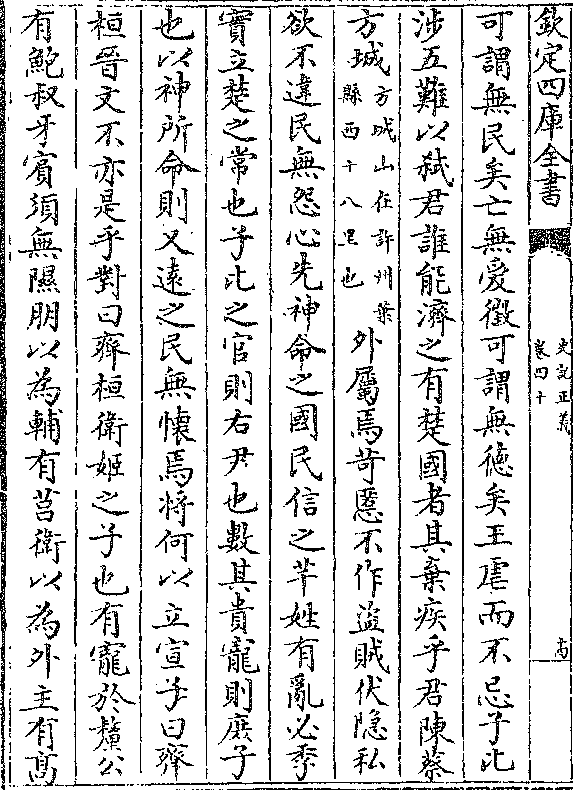 欽定四庫全書
史記正義
卷四十
可謂無民矣亡無愛徵可謂無德矣王虐而不忌子比
涉五難以弑君誰能濟之有楚國者其棄疾乎君陳蔡
方城方城山在許州葉縣西十八里也外屬焉苛慝不作盜賊伏隐私
欲不違民無怨心先神命之國民信之芈姓有亂必季
實立楚之常也子比之官則右尹也數其貴寵則庶子
也以神所命則又遠之民無懷焉將何以立宣子曰齊
桓晉文不亦是乎對曰齊桓衛姬之子也有寵於釐公
有鮑叔牙賓須無隰朋以為輔有莒衛以為外主有髙